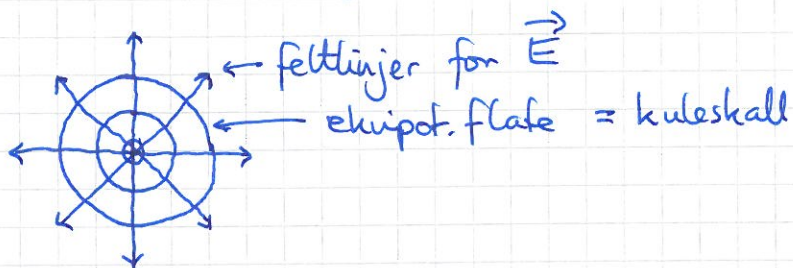 ← feltlinjer for E⃗
← ekvipot. flate = kuleskall